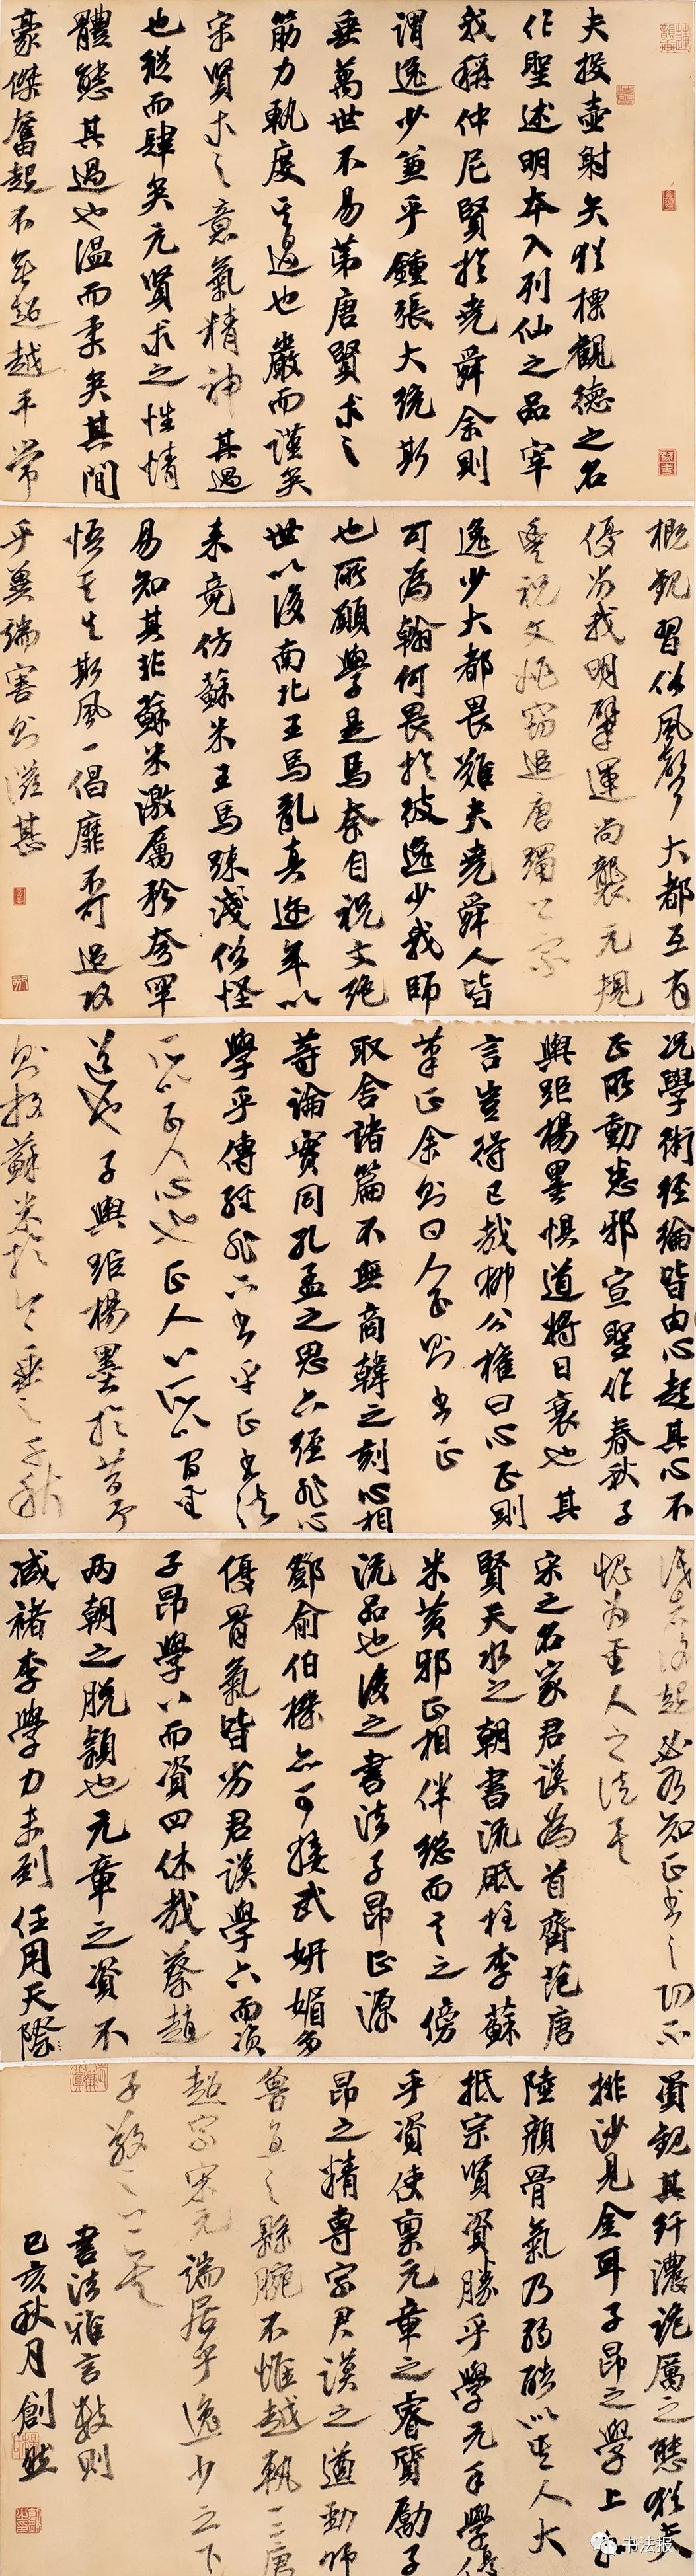 夫投壶射矢犹標觀德之名
作聖述明本入列仙之品宰
我稱仲尼賢於堯舜余則
謂逸少兼乎鍾張大統斯
垂萬世不易第唐賢求之
筋力軌度其過也嚴而謹矣
宋賢求之意氣精神其過
也縱而肆矣元賢求之性情
體態其過也温而柔矣其間
豪傑奮起不無超越平常
概觀習俗風聲大都互有
優劣我明肇運尚襲元規
豐祝文姚竊追唐躅上宗
逸少大都畏難夫堯舜人皆
可為翰何畏於彼逸少我師
也所願學是焉奈自祝文絶
世以後南北王馬亂真逈年以
来竟仿蘇米王馬疎淺俗怪
易知其非蘇米激厲矜夸罕
悟其失斯風一倡靡不可追攻
乎異端害則滋甚
况學術經綸皆由心起其心不
正所動悉邪宣聖作春秋子
輿距楊墨懼道將日衰也其
言豈得已哉柳公權曰心正則
筆正余則曰人正則書正
取舍諸篇不無商韓之刻心相
等論實同孔孟之思六經非心
學乎傳經非六書乎正書法
所以正人心也正人心所以閑聖
道也子輿距楊墨於昔予
則放蘇米於今垂之千秋
識者復起必有知正書之功不
愧為聖人之徒矣
宋之名家君謨為首齊范唐
賢天水之朝書流砥柱李蘇
米黄邪正相伴總而言之傍
流品也後之書法子昂正源
鄧俞伯機亦可接武妍媚多
優骨氣皆劣君謨學六而資
子昂學八而資四休哉蔡趙
兩朝之脱穎也元章之資不
减褚李學力未到任用天資
觀其纤濃詭厲之態猶夫
排沙見金耳子昂之學上
陸顔骨氣乃弱酷似其人大
抵宋賢資勝乎學元手學優
乎資使禀元章之睿質勵子
昂之精專宗君謨之遒勁師
魯直之懸腕不惟越軌三唐
超宗宋元端居乎逸少之下
子敬之上矣
書法雅言數則
己亥秋月創
书法报